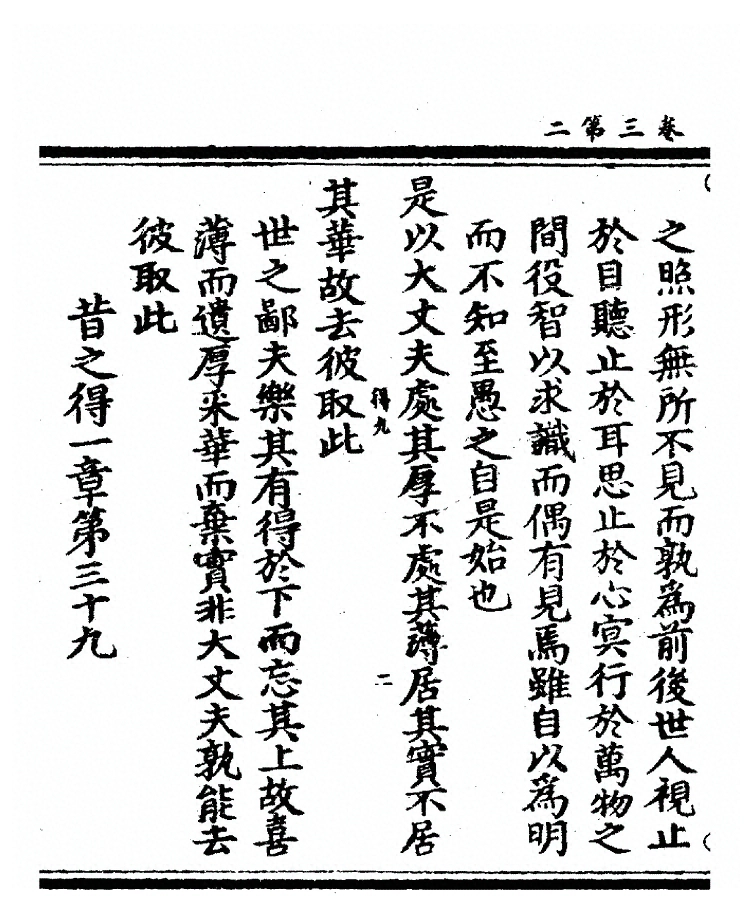 卷三第二
之照形無所不見而孰爲前後世人視止
於目聽止於耳思止於心冥行於萬物之
間役智以求識而偶有見焉雖自以爲明
而不知至愚之自是始也
是以大丈夫處其厚不處其薄居其實不居
得九
二
其華故去彼取此
世之鄙夫樂其有得於下而忘其上故喜
薄而遺厚采華而棄實非大丈夫孰能去
彼取此
昔之得一章第三十九